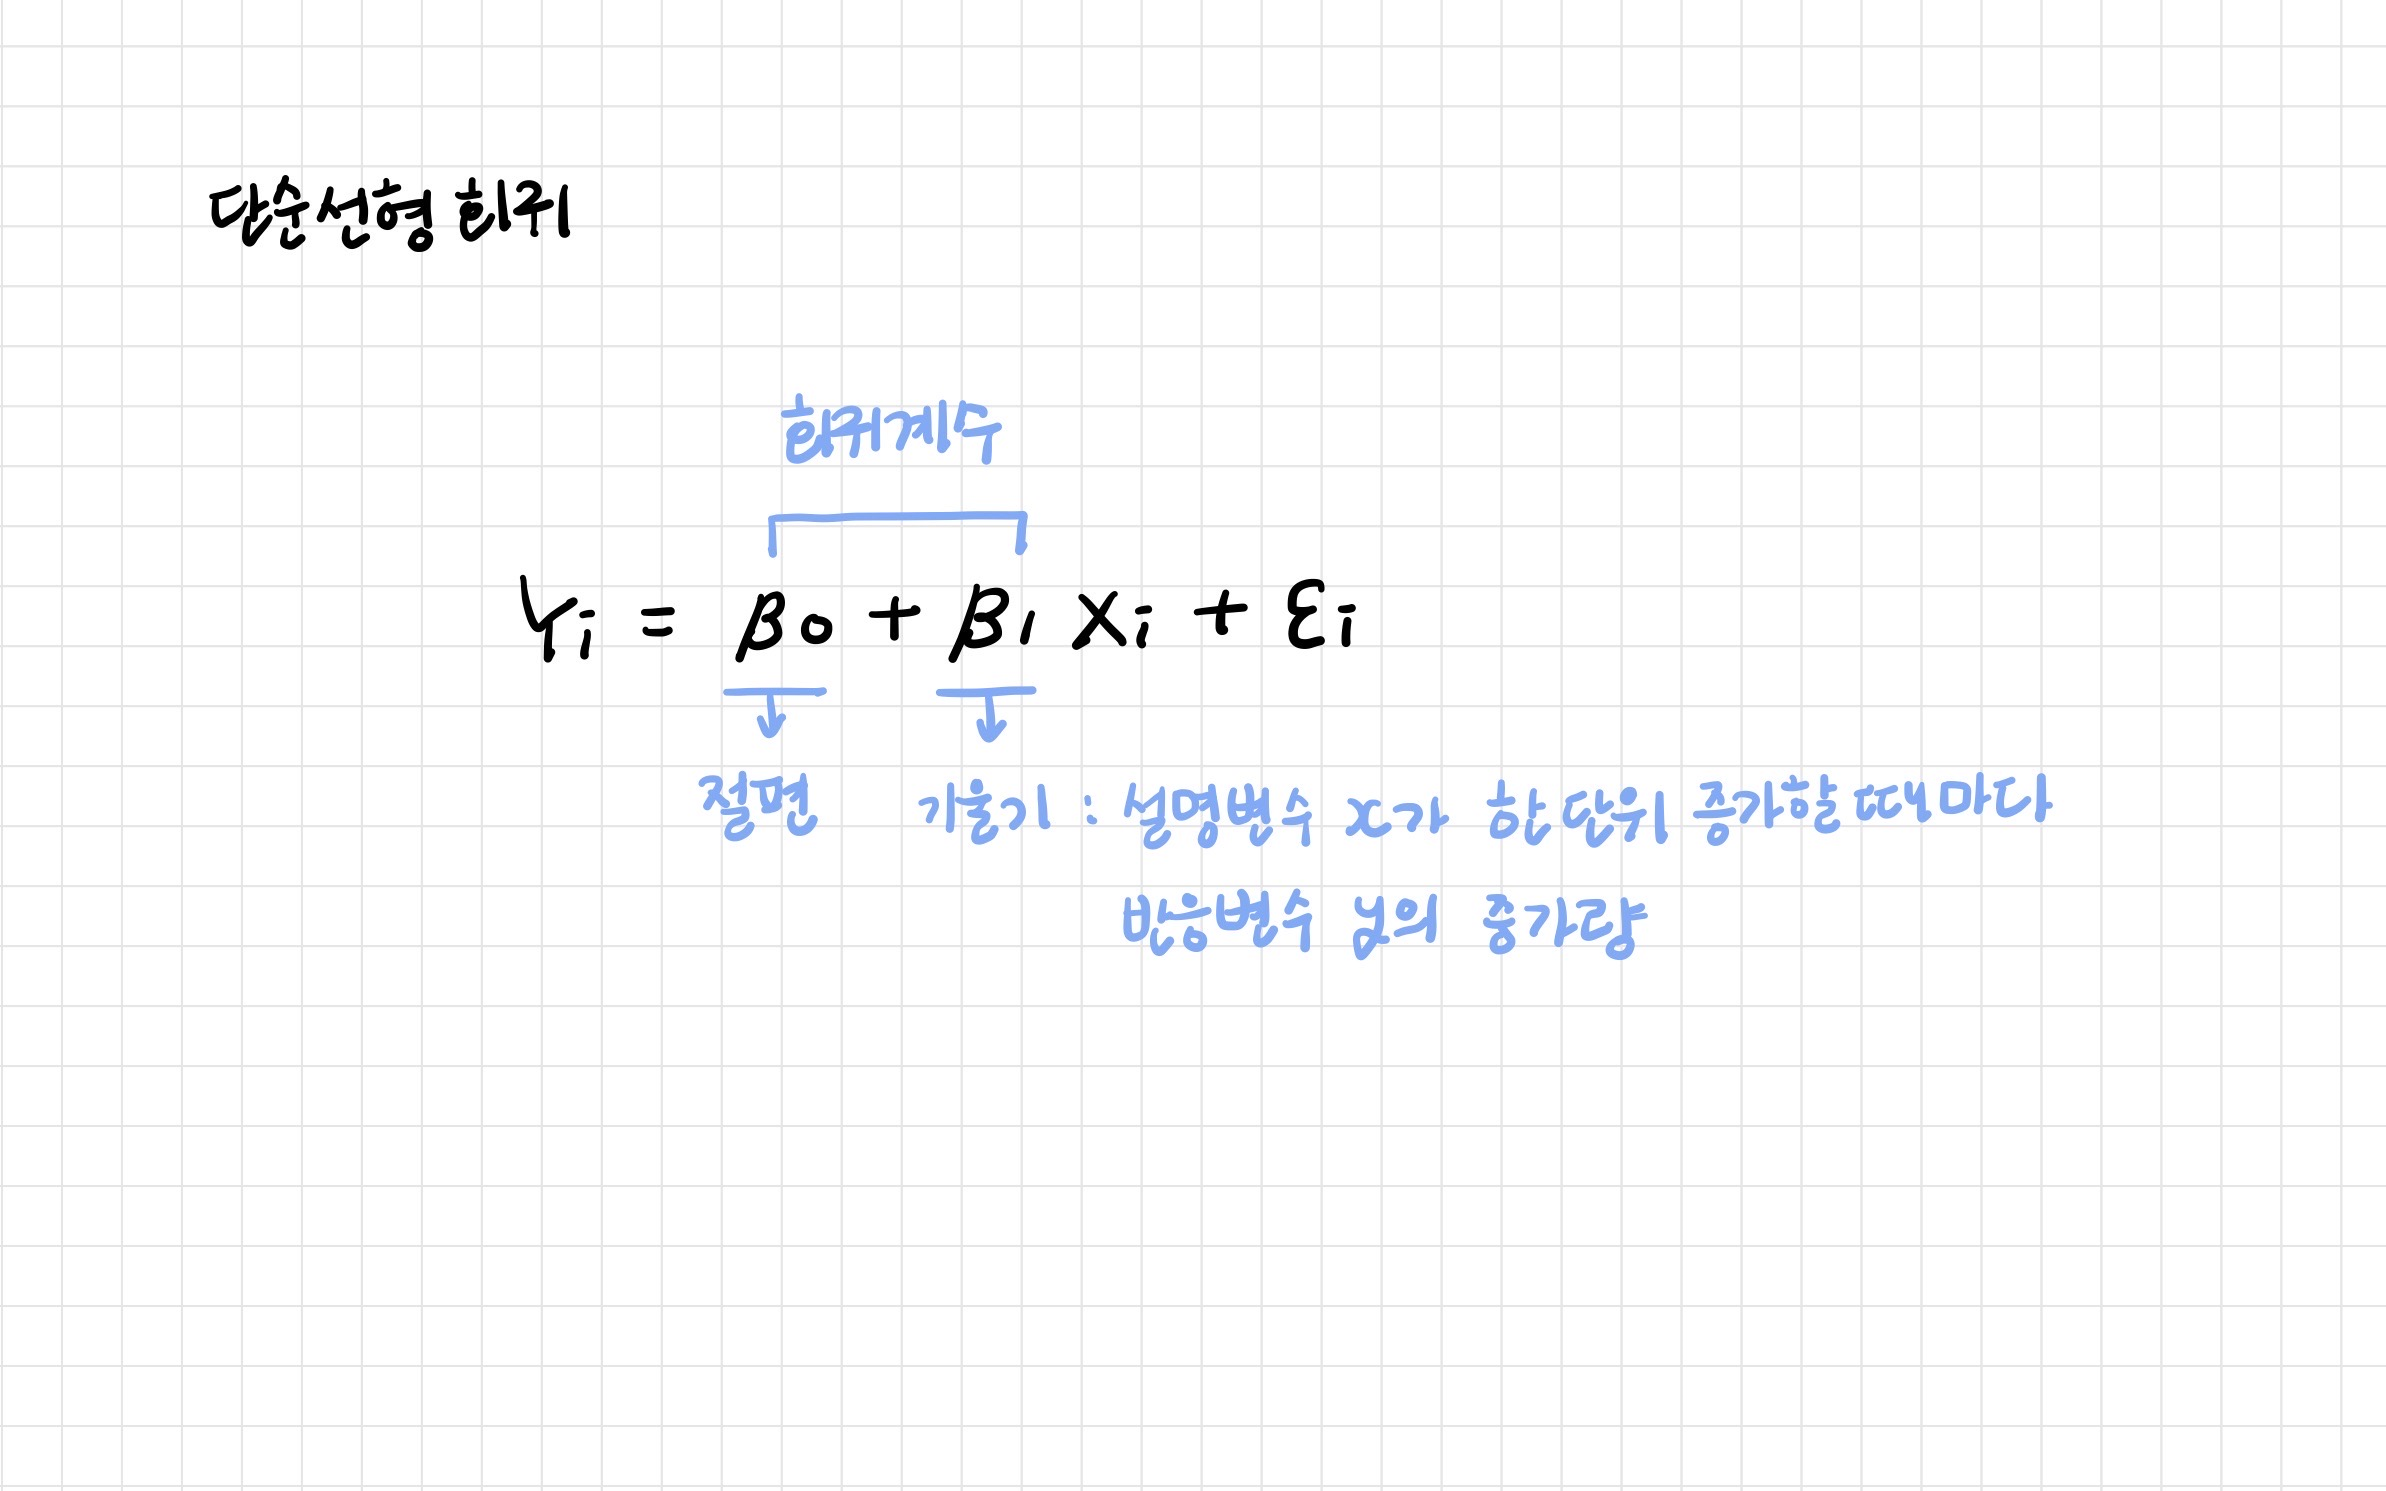 단순 선형 회귀
회귀계수
Yi = β0 + β1 Xi + εi
절편 기울기 : 설명변수 x가 한 단위 증가할 때마다
반응변수 y의 증가량